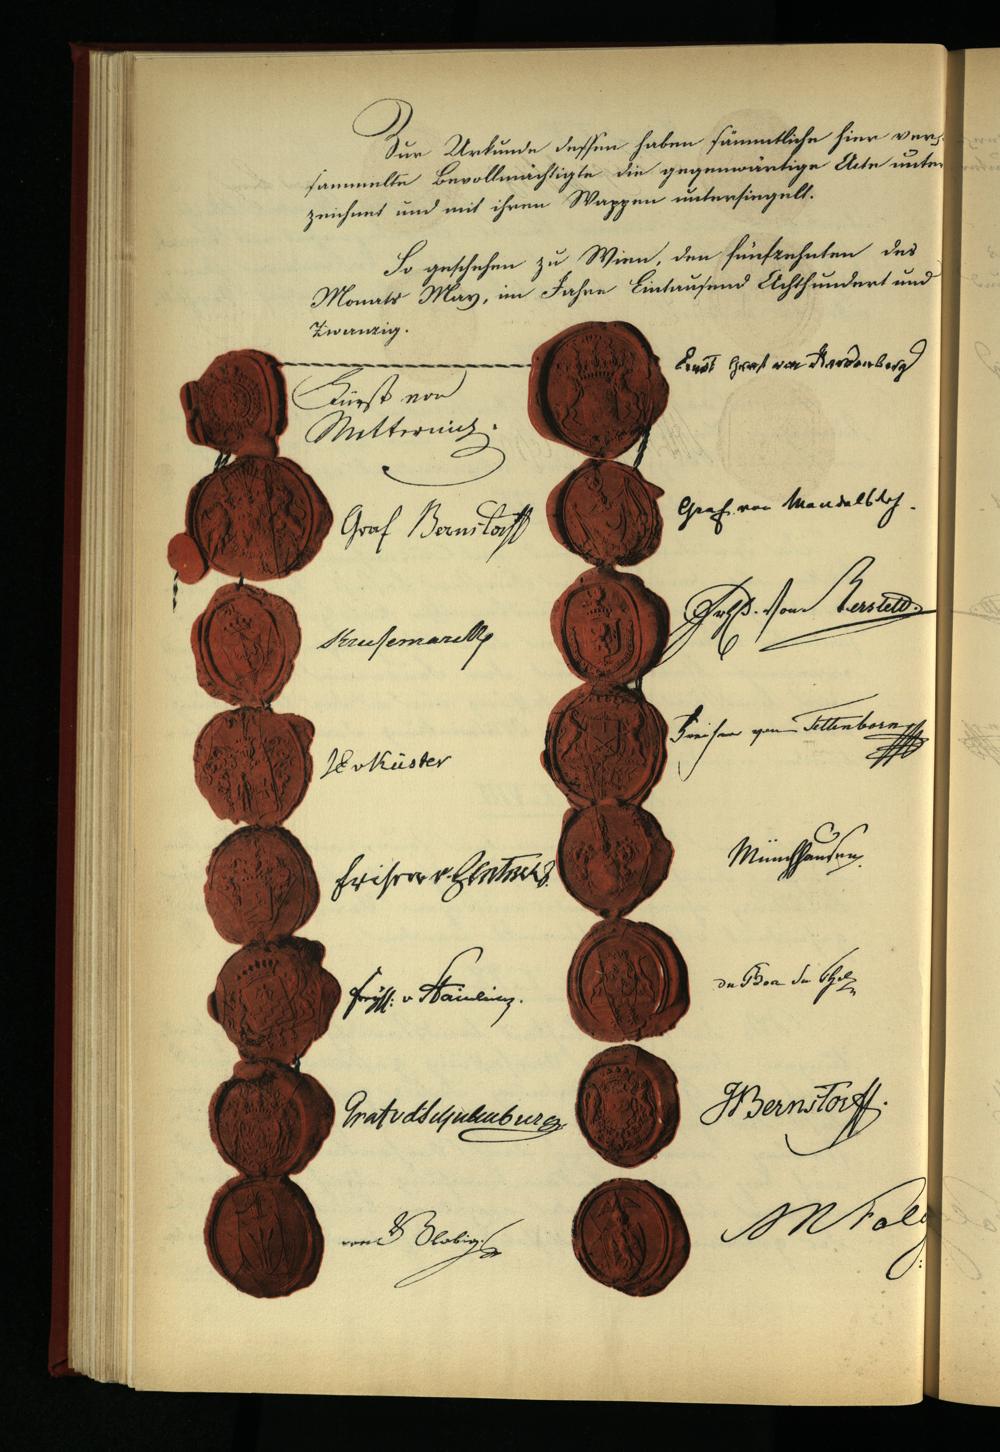 Zur Urkunde dessen haben sämmtliche hier ver-
sammelte Bevollmächtigte die gegenwärtige Akte unter
zeichnet und mit ihren Wappen untersiegelt.
So geschehen zu Wien, den fünfzehnten des
Monats May, im Jahre Eintausend Achthundert und
Zwanzig.
Fürst von
Metternich.
Graf Bernstorff
Krusemarck
JE v Küster
Freiherr v. Zentner
Freyh: v Stainlein.
Graf v d Schulenburg
von Globig
Ernst Graf von Hardenberg
Graf von Mandelsloh.
Frhß. von Berstett.
Freiherr von Tettenborn
Münchhausen.
du Bos du Thil
JBernstorff.